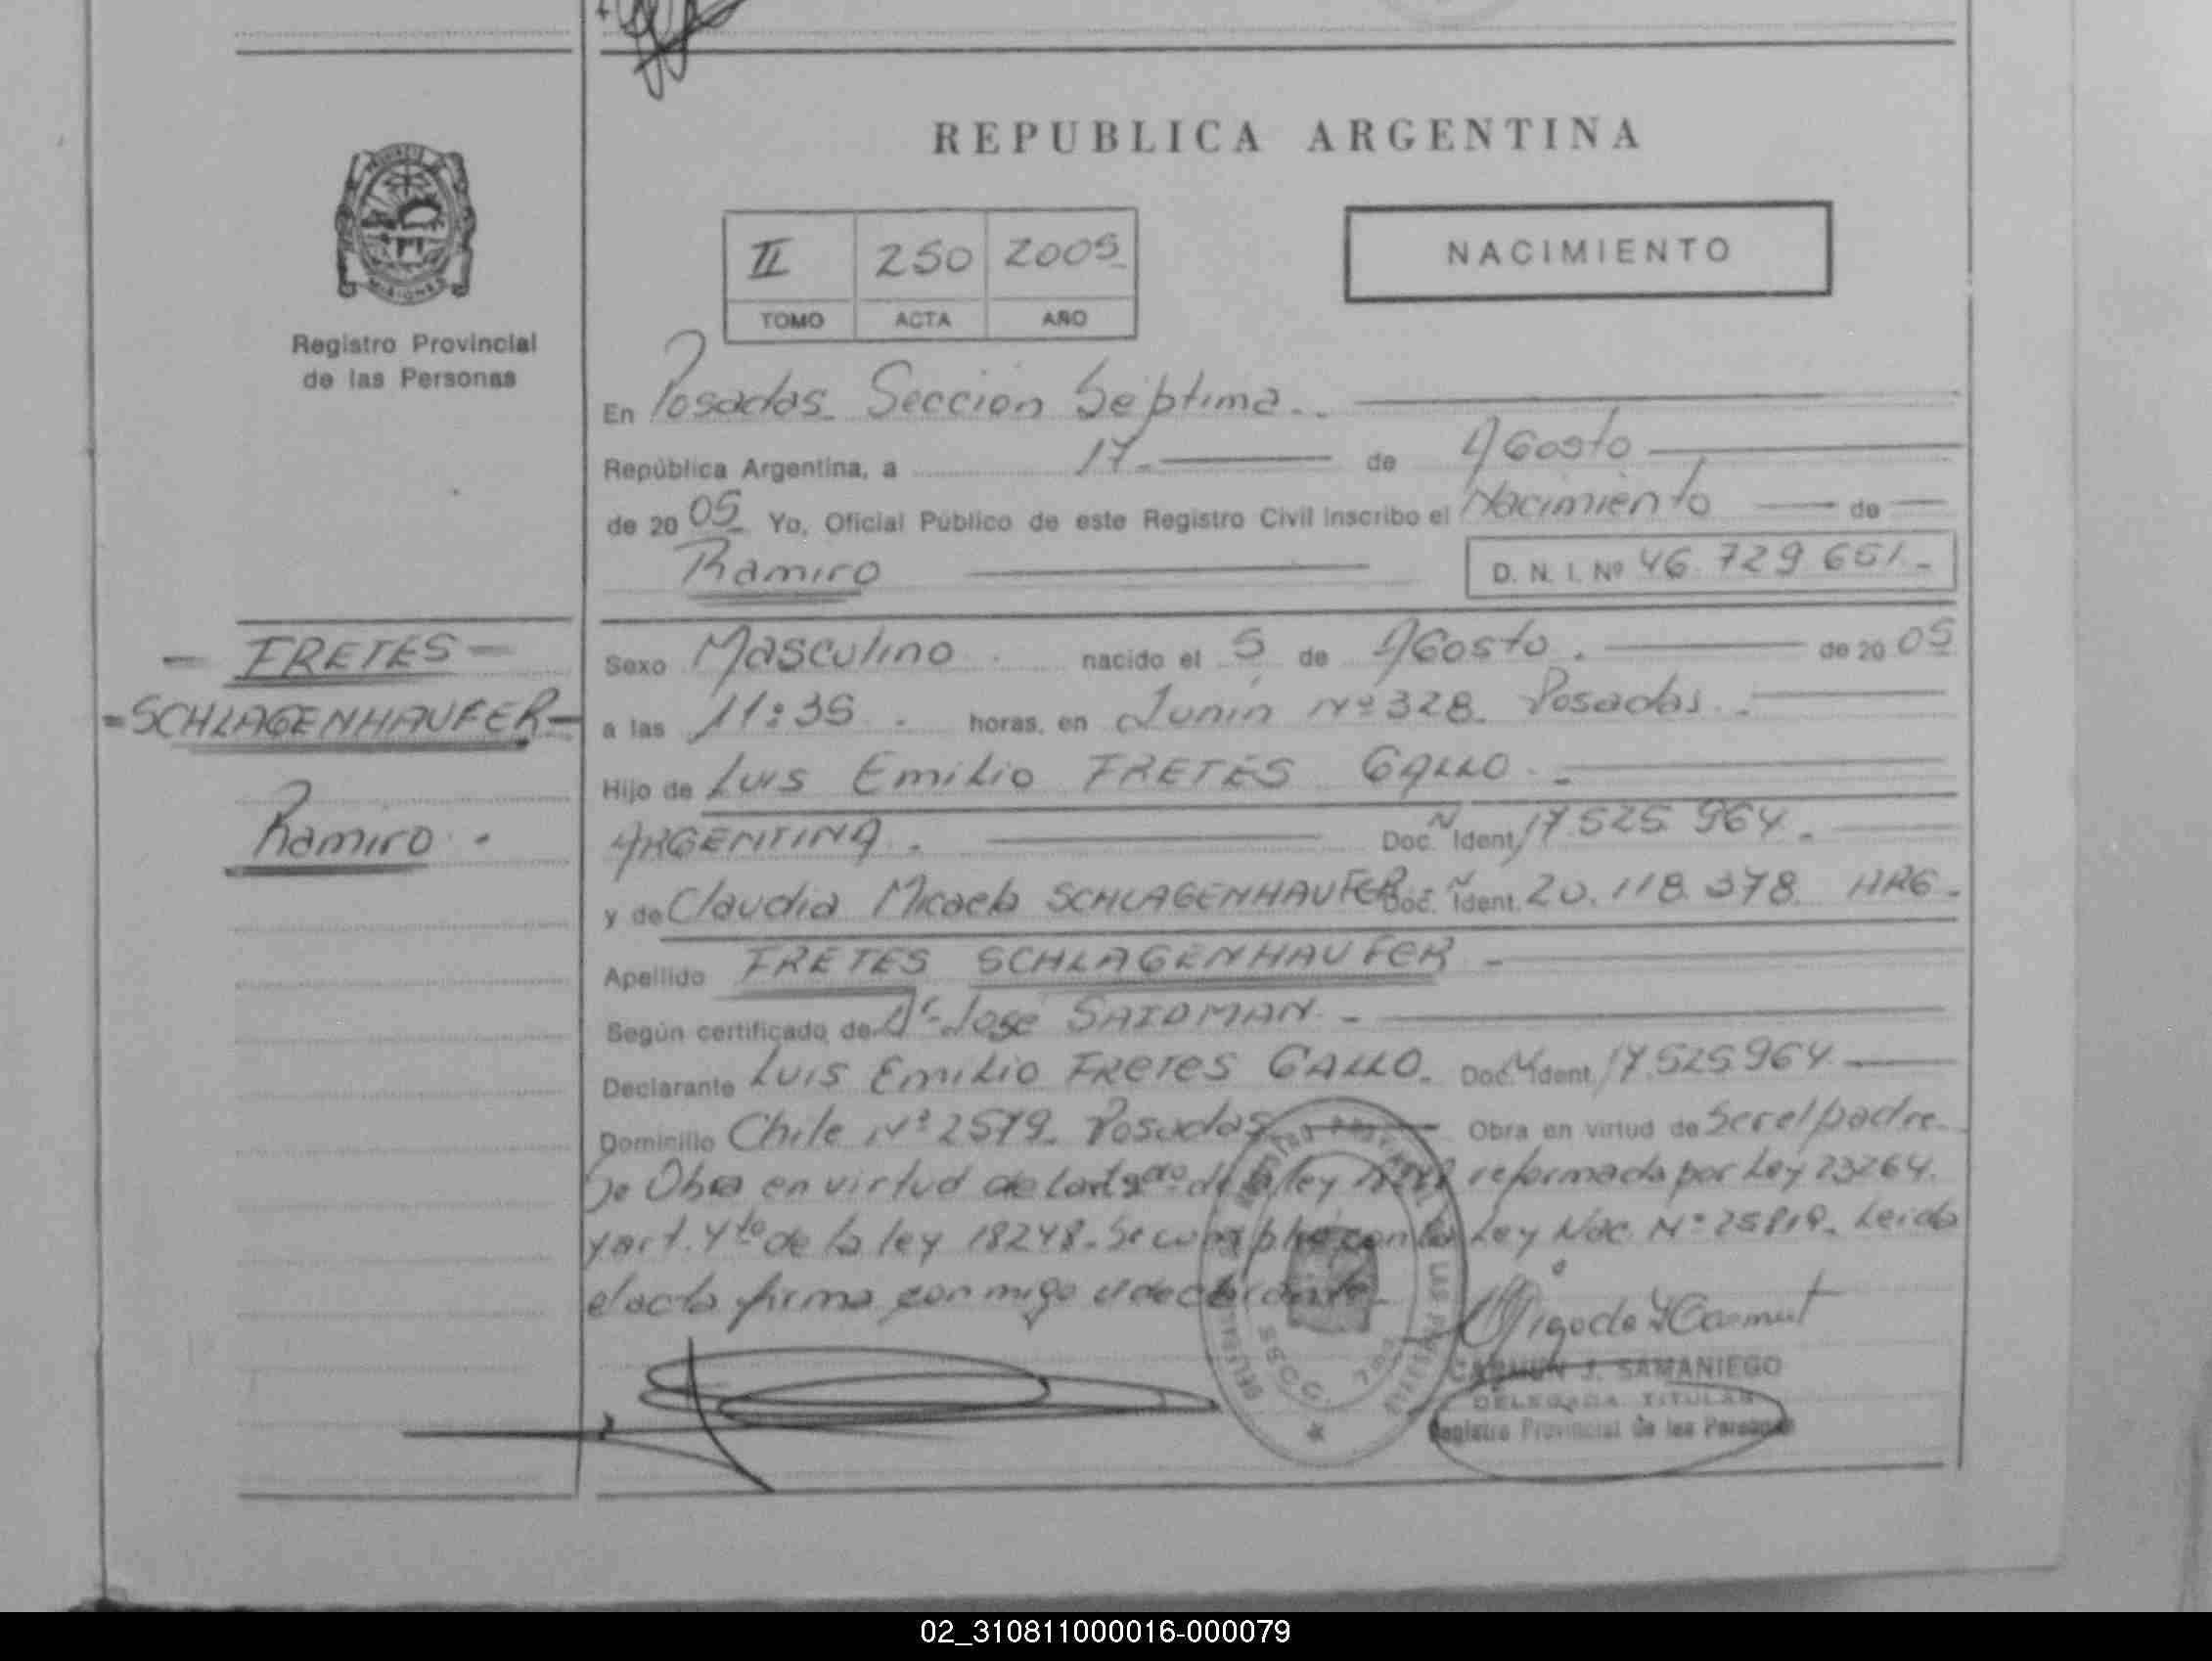 REPUBLICA ARGENTINA
II 250 2005
TOMO ACTA AÑO
NACIMIENTO
MISIONES
Registro Provincial
de las Personas
En Posadas Sección Séptima.
República Argentina, a 17 de Agosto
de 20 05 Yo, Oficial Público de este Registro Civil inscribo el Nacimiento de
Ramiro D. N. I. Nº 46 729 651
- FRETES -
- SCHLAGENHAUFER -
Ramiro.
Sexo Masculino nacido el 5 de Agosto de 20 05
a las 11:35 horas, en Junín Nº 328. Posadas.
Hijo de Luis Emilio FRETES GALLO
ARGENTINA. Doc. Ident. 17.525.964
y de Claudia Micaela SCHLAGENHAUFER Doc. Ident. 20.118.378 ARG.
Apellido FRETES SCHLAGENHAUFER
Según certificado de Dr. José SAIDMAN
Declarante Luis Emilio FRETES GALLO. Doc. Ident. 17.525964
Dominilio Chile Nº 2579. Posadas Obra en virtud de Ser el padre
Se Obra en virtud de la ley reformada por Ley 23264.
y art. 4to de la ley 18248. Se cumplió con la Ley Nac. Nº Leida
el acta firma con migo el declarante
CARMEN J. SAMANIEGO
DELEGADA TITULAR
Registro Provincial de las Personas
02_310811000016-000079